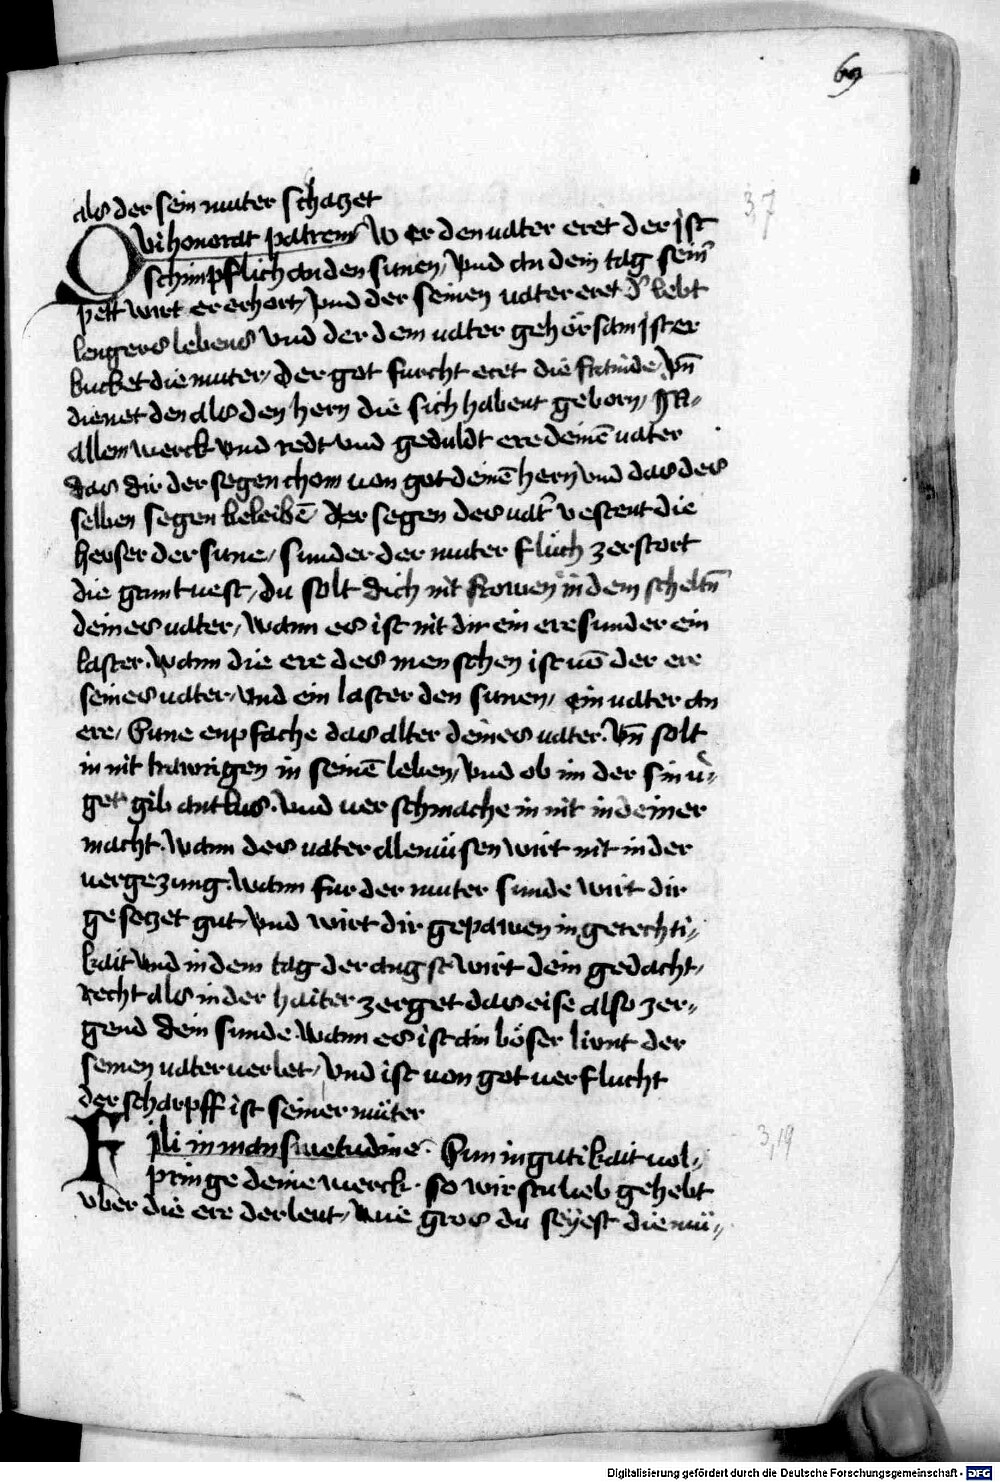 69
als der sein muter schatzet
37
Qui honorat patrem Wer den vater eret der jst
schimpflich an den sunen, vnd an dem tag seinˢ
pett wirt er erhort, vnd der seinen vater eret dˢ lebt
lengers lebens vnd der dem vater gehörsam jst er
kucket die muter, der got furcht eret die frůnde, vn̄
dienet den als den hern die sich habent geborn, Jn-
allem werck vnd redt vnd geduldt ere deinē vater
das dir der segen chom von got deinē hern vnd das des
selben segen beleibē, der segen des vatˢ vestent die
heuser der sune, sunder der muter flůch zerstort
die gruntuest, du solt dich nit frowen in dem scheltn̄
deines vater, wann es ist nit dir ein ere sunder ein
laster. wann die ere des menschen ist vō der ere
seines vater, vnd ein laster den sunen, ein vater an
ere, Sune enpfache das alter deines vater. vn̄ solt
in nit trawrigen in seinē leben, vnd ob im der sin vˢ-
get gib antlas. vnd verschmache in nit in deiner
macht. wann des vater allemůsen wirt nit in der
vergezung. wann fur der muter sunde wirt dir
gesetzet gut, vnd wirt dir gepawen in gerechti-
kait vnd in dem tag der angst wirt dein gedacht,
recht als in der haiter zerget das eise also zer-
gend dein sunde. wann es ist ain böser limnt der
seinen vater verlet, vnd ist von got verflucht
der scharpff ist seiner můter
3,19
Fili in mansuetudine. Sun in gutikait vol-
pringe deine werck. so wirstu lieb gehebt
vber die ere der leut, wie gros du seyest die mü-
Digitalisierung gefördert durch die Deutsche Forschungsgemeinschaft - DFG